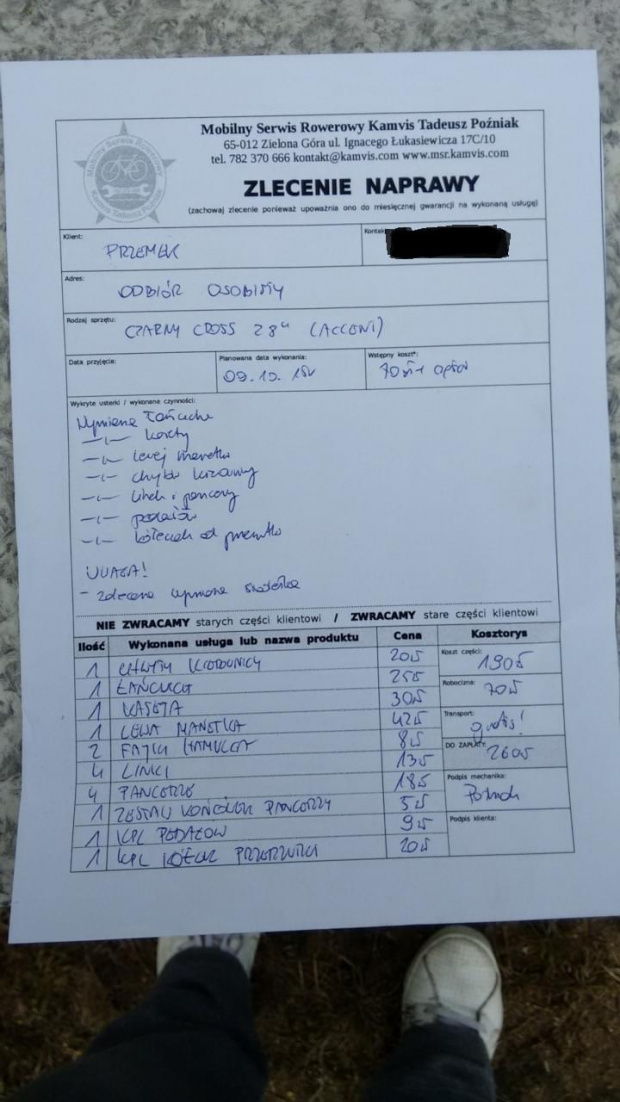 Mobilny Serwis Rowerowy Kamvis Tadeusz Poźniak
65-012 Zielona Góra ul. Ignacego Łukasiewicza 17C/10
tel. 782 370 666 kontakt@kamvis.com www.msr.kamvis.com
ZLECENIE NAPRAWY
(zachowaj zlecenie ponieważ upoważnia ono do miesięcznej gwarancji na wykonaną usługę)
Klient: PRZEMEK
Adres: ODBIÓR OSOBISTY
Rodzaj sprzętu: CZARNY CROSS 28" (ACCENT)
Data przyjęcia: Planowana data wykonania: 09.10. Wstępny koszt*: 70zł+ części
Wykryte usterki / wykonane czynności:
Wymiana łańcucha
-"- kasety
-"- lewej manetki
-"- chwytów kierownicy
-"- linek i pancerzy
-"- pedałów
-"- kółeczek od
UWAGA!
- zalecana wymiana
NIE ZWRACAMY starych części klientowi / ZWRACAMY stare części klientowi
Ilość Wykonana usługa lub nazwa produktu Cena Kosztorys
1 CHWYTY KIEROWNICY 20zł Koszt części: 190zł
1 ŁAŃCUCH 25zł
1 KASETA 30zł Robocizna: 70zł
1 LEWA MANETKA 42zł Transport: gratis!
2 FAJKI HAMULCA 8zł DO ZAPŁATY: 260zł
4 LINKI 13zł
4 PANCERZE 18zł Podpis mechanika:
1 ZESTAW KOŃCÓWEK PANCERZY 5zł
1 KPL PEDAŁÓW 9zł Podpis klienta:
1 KPL KÓŁEK PRZERZUTKI 20zł